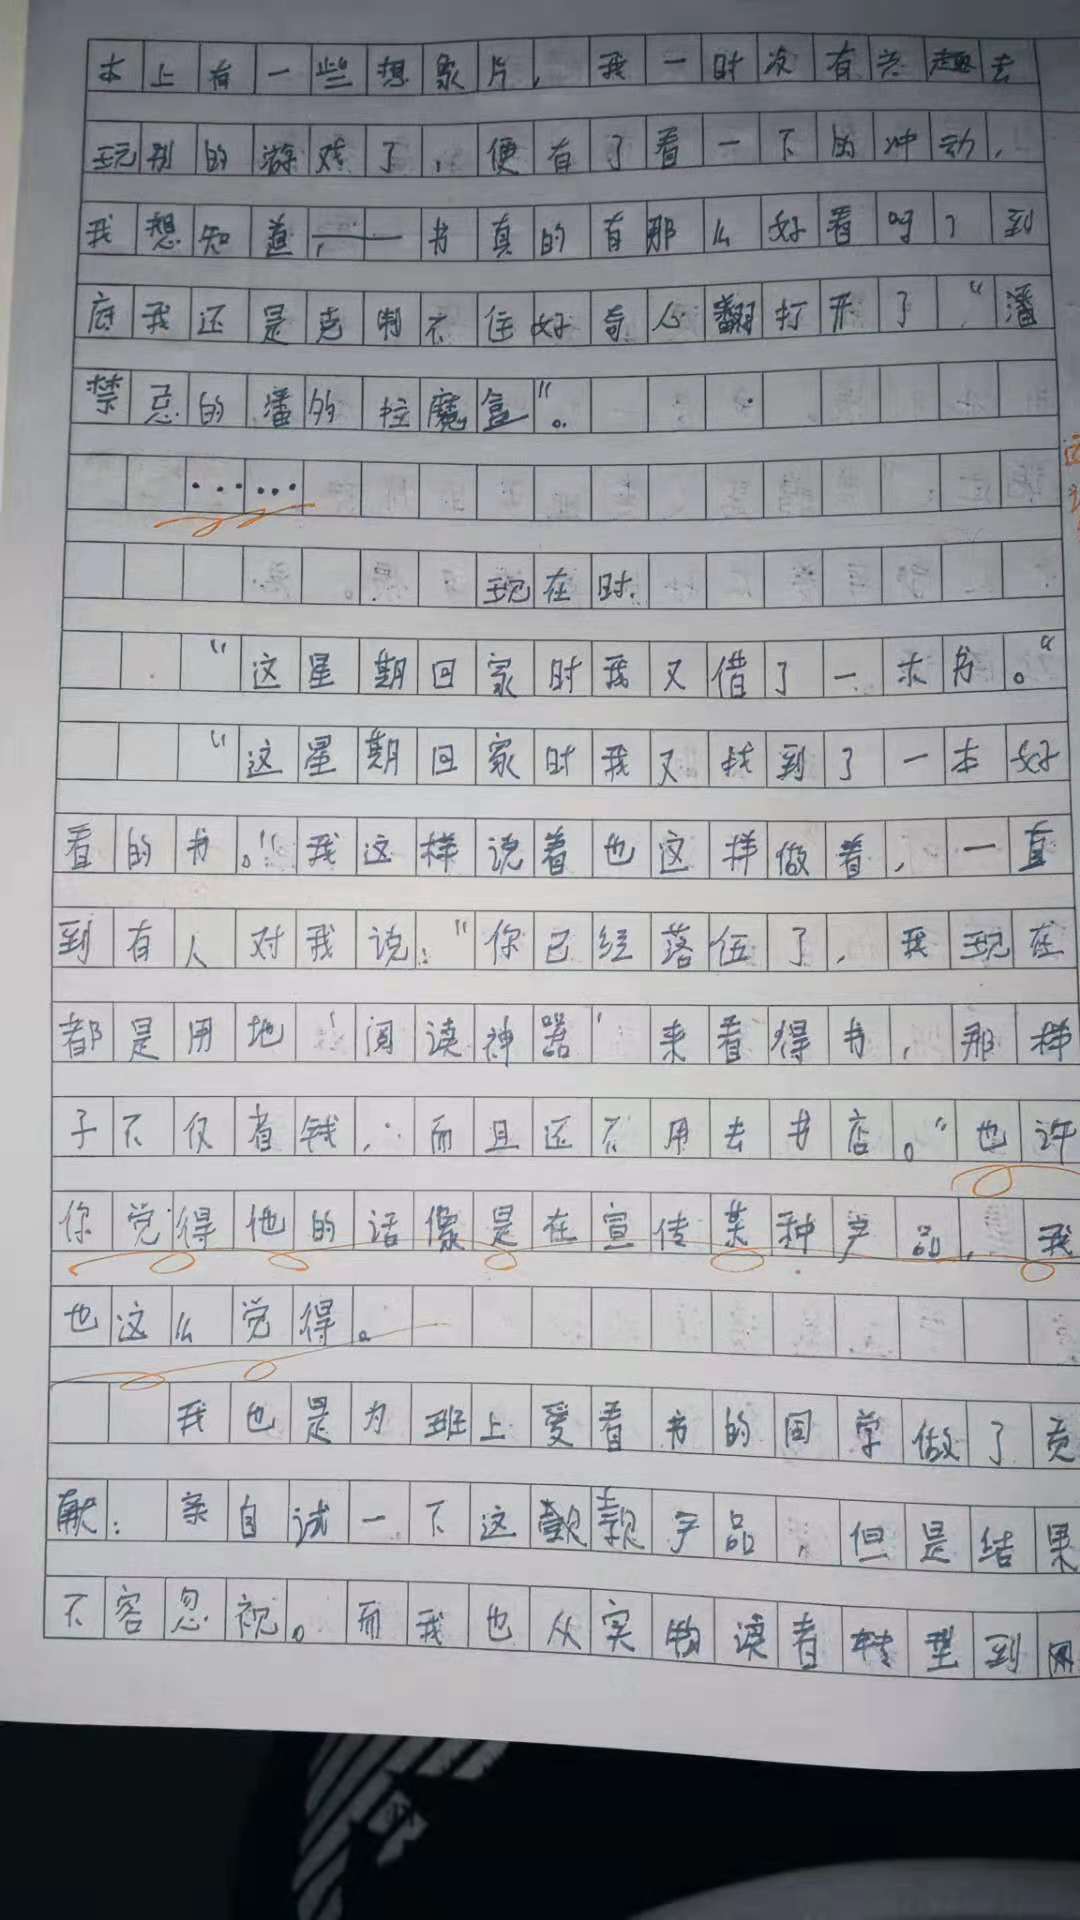 本上有一些想象片，我一时没有兴趣去
玩别的游戏了，便有了看一下的冲动，
我想知道，——书真的有那么好看吗？到
底我还是克制不住好奇心翻打开了“潘
禁忌的潘的拉魔盒”。
……
现在时.
“这星期回家时我又借了一本书。“
“这星期回家时我又找到了一本好
看的书。”我这样说着也这样做着，一直
到有人对我说：“你已经落伍了，我现在
都是用地‘阅读神器’来看得书，那样
子不仅省钱，而且还不用去书店。”也许
你觉得他的话像是在宣传某种产品，我
也这么觉得。
我也是为班上爱看书的同学做了贡
献：亲自试一下这款产品，但是结果
不容忽视。而我也从实物读者转型到网